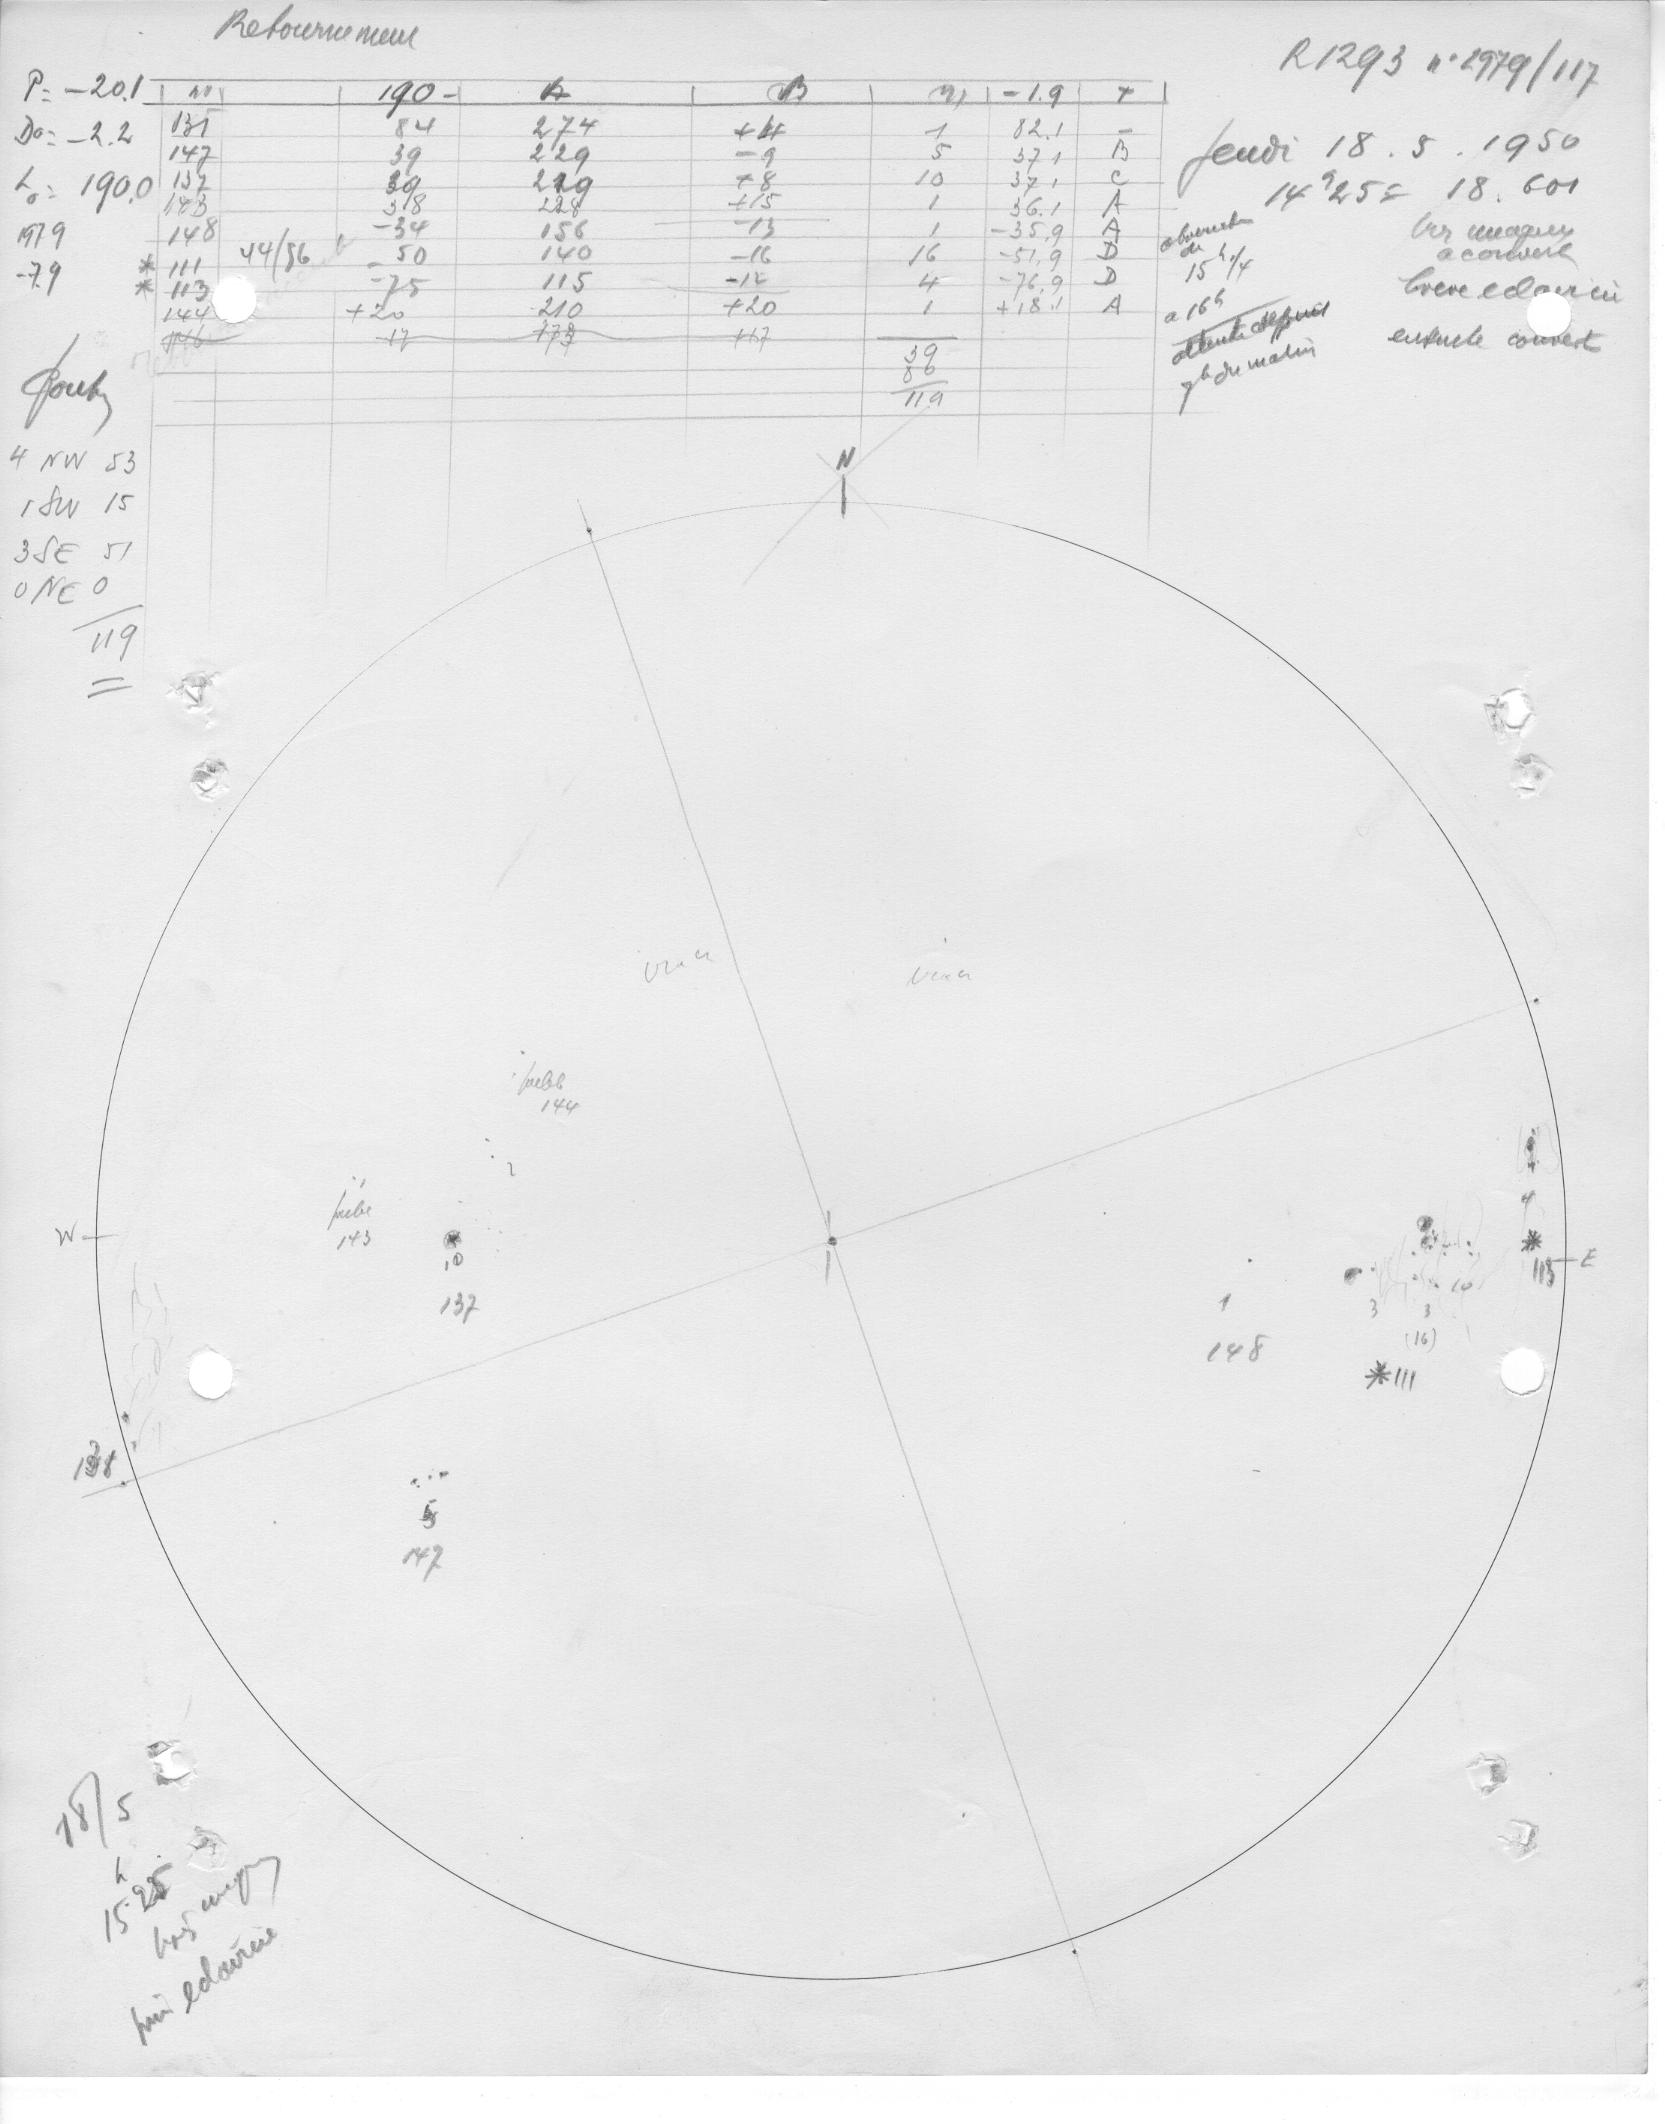 Retournement
R1293 n° 2979/117
P = -20.1
Do = -2.2
Lo = 190.0
1979
-7.9
no 190- A B n -1.9 T
84 274 1 82.1 -
147 39 229 -9 5 37.1 B
137 39 229 +8 10 37.1 C
143 38 228 +15 1 36.1 A
148 -34 156 -13 1 -35.9 A
* 111 44/56 -50 140 -16 16 -51.9 D
* 113 -75 115 -12 4 -76.9 D
144 +20 210 +20 1 +18.1 A
146 17 173 +17
39
80
119
Jeudi 18.5.1950
14h25 = 18.601
15h 1/4
a 16h
9h du matin
très nuageux
a couvert
brève eclaircie
ensuite couvert
4 NW 53
1 SW 15
3 SE 51
0 NE 0
119
N
144
W
143
10
137
138
5
147
1
148
4
113
E
3
3
10
(16)
*111
18/5
15h25
eclaircie